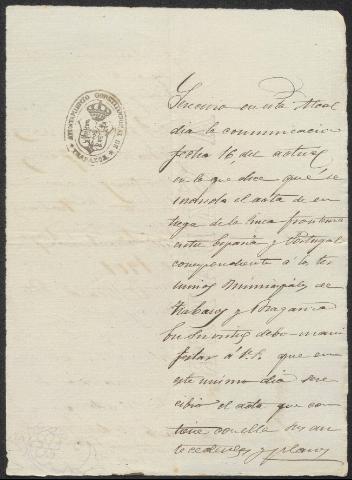 AYUNTAMIENTO CONSTITUCIONAL DE
en esta Alcal
dia la comunicacion
fecha 16 del actual
en la que dice que se
el acta de en
trega de la linea fronteriza
entre España y Portugal
correspondiente á los ter
minos Municipales de
y Bragança
debo mani
festar á V.S. que en
este mismo dia se re
cibió el acta que con
tiene con ella sus an
tecedentes y planos